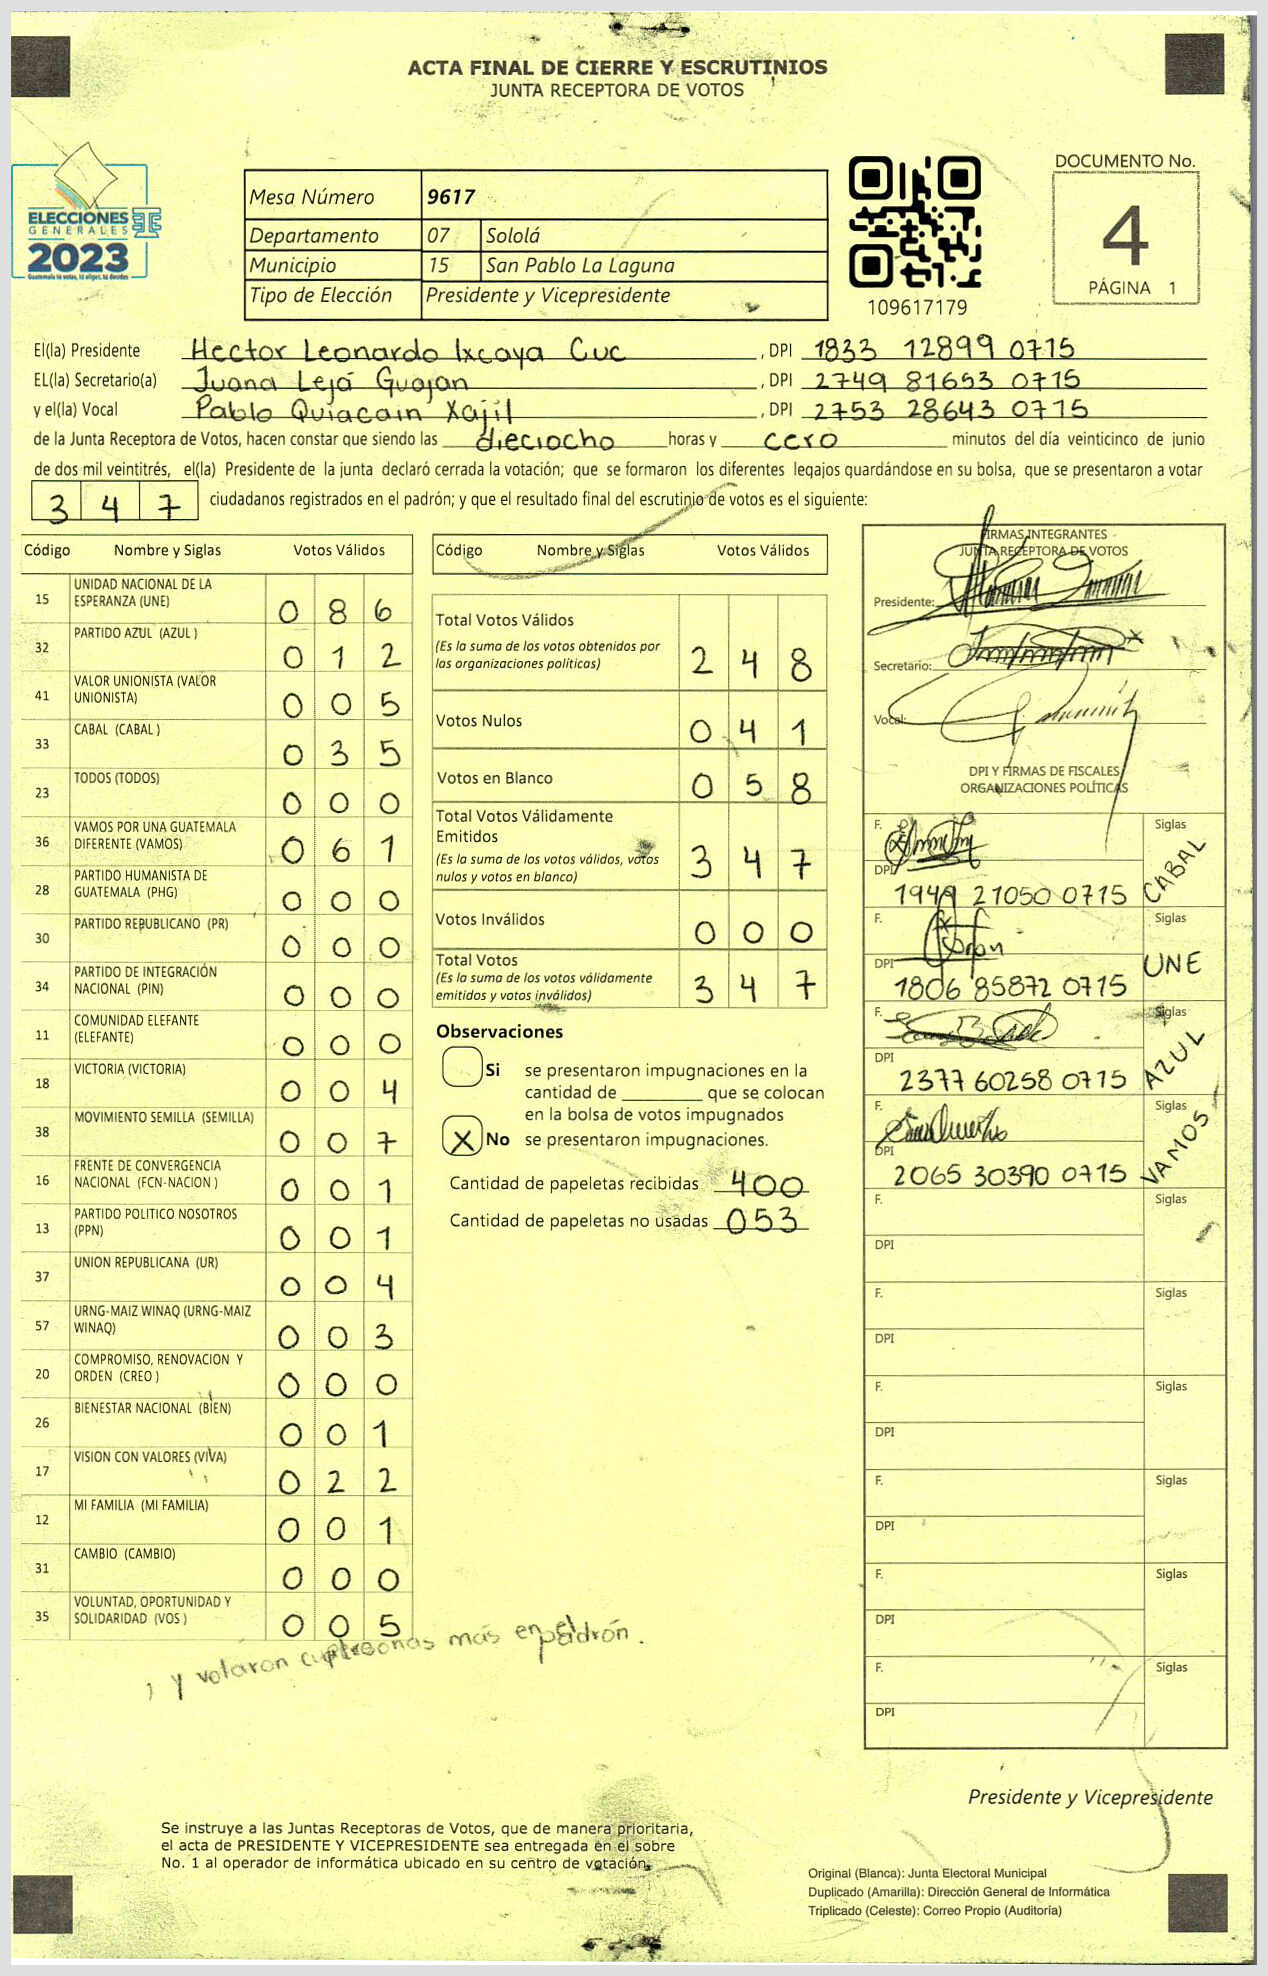 ACTA FINAL DE CIERRE Y ESCRUTINIOS
JUNTA RECEPTORA DE VOTOS
ELECCIONES
GENERALES
2023
Guatemala tú votas, tú eliges, tú decides
Mesa Número 9617
Departamento 07 Sololá
Municipio 15 San Pablo La Laguna
Tipo de Elección Presidente y Vicepresidente
109617179
DOCUMENTO No.
4
PÁGINA 1
El(la) Presidente Hector Leonardo Ixcaya Cuc, DPI 1833 12899 0715
EL(la) Secretario(a) Juana Lejá Guojan, DPI 2749 81653 0715
y el(la) Vocal Pablo Quiacain Xajil, DPI 2753 28643 0715
de la Junta Receptora de Votos, hacen constar que siendo las dieciocho horas y cero minutos del día veinticinco de junio
de dos mil veintitrés, el(la) Presidente de la junta declaró cerrada la votación; que se formaron los diferentes legajos guardándose en su bolsa, que se presentaron a votar
3 4 7 ciudadanos registrados en el padrón; y que el resultado final del escrutinio de votos es el siguiente:
Código Nombre y Siglas Votos Válidos
15 UNIDAD NACIONAL DE LA
ESPERANZA (UNE) 0 8 6
32 PARTIDO AZUL (AZUL ) 0 1 2
41 VALOR UNIONISTA (VALOR
UNIONISTA) 0 0 5
33 CABAL (CABAL ) 0 3 5
23 TODOS (TODOS) 0 0 0
36 VAMOS POR UNA GUATEMALA
DIFERENTE (VAMOS) 0 6 1
28 PARTIDO HUMANISTA DE
GUATEMALA (PHG) 0 0 0
30 PARTIDO REPUBLICANO (PR) 0 0 0
34 PARTIDO DE INTEGRACIÓN
NACIONAL (PIN) 0 0 0
11 COMUNIDAD ELEFANTE
(ELEFANTE) 0 0 0
18 VICTORIA (VICTORIA) 0 0 4
38 MOVIMIENTO SEMILLA (SEMILLA) 0 0 7
16 FRENTE DE CONVERGENCIA
NACIONAL (FCN-NACION ) 0 0 1
13 PARTIDO POLITICO NOSOTROS
(PPN) 0 0 1
37 UNION REPUBLICANA (UR) 0 0 4
57 URNG-MAIZ WINAQ (URNG-MAIZ
WINAQ) 0 0 3
20 COMPROMISO, RENOVACION Y
ORDEN (CREO ) 0 0 0
26 BIENESTAR NACIONAL (BIEN) 0 0 1
17 VISION CON VALORES (VIVA) 0 2 2
12 MI FAMILIA (MI FAMILIA) 0 0 1
31 CAMBIO (CAMBIO) 0 0 0
35 VOLUNTAD, OPORTUNIDAD Y
SOLIDARIDAD (VOS ) 0 0 5
, y votaron personas más en el padrón.
Código Nombre y Siglas Votos Válidos
Total Votos Válidos
(Es la suma de los votos obtenidos por
las organizaciones políticas) 2 4 8
Votos Nulos 0 4 1
Votos en Blanco 0 5 8
Total Votos Válidamente
Emitidos
(Es la suma de los votos válidos, votos
nulos y votos en blanco) 3 4 7
Votos Inválidos 0 0 0
Total Votos
(Es la suma de los votos válidamente
emitidos y votos inválidos) 3 4 7
Observaciones
Si se presentaron impugnaciones en la
cantidad de ________ que se colocan
en la bolsa de votos impugnados
X No se presentaron impugnaciones.
Cantidad de papeletas recibidas 400
Cantidad de papeletas no usadas 053
FIRMAS INTEGRANTES
JUNTA RECEPTORA DE VOTOS
Presidente:
Secretario:
Vocal:
DPI Y FIRMAS DE FISCALES
ORGANIZACIONES POLÍTICAS
F. Siglas
DPI 1949 21050 0715 CABAL
F. Siglas
DPI 1806 85872 0715 UNE
F. Siglas
DPI 2377 60258 0715 AZUL
F. Siglas
DPI 2065 30390 0715 VAMOS
F. Siglas
DPI
F. Siglas
DPI
F. Siglas
DPI
F. Siglas
DPI
F. Siglas
DPI
F. Siglas
DPI
Presidente y Vicepresidente
Se instruye a las Juntas Receptoras de Votos, que de manera prioritaria,
el acta de PRESIDENTE Y VICEPRESIDENTE sea entregada en el sobre
No. 1 al operador de informática ubicado en su centro de votación.
Original (Blanca): Junta Electoral Municipal
Duplicado (Amarilla): Dirección General de Informática
Triplicado (Celeste): Correo Propio (Auditoría)